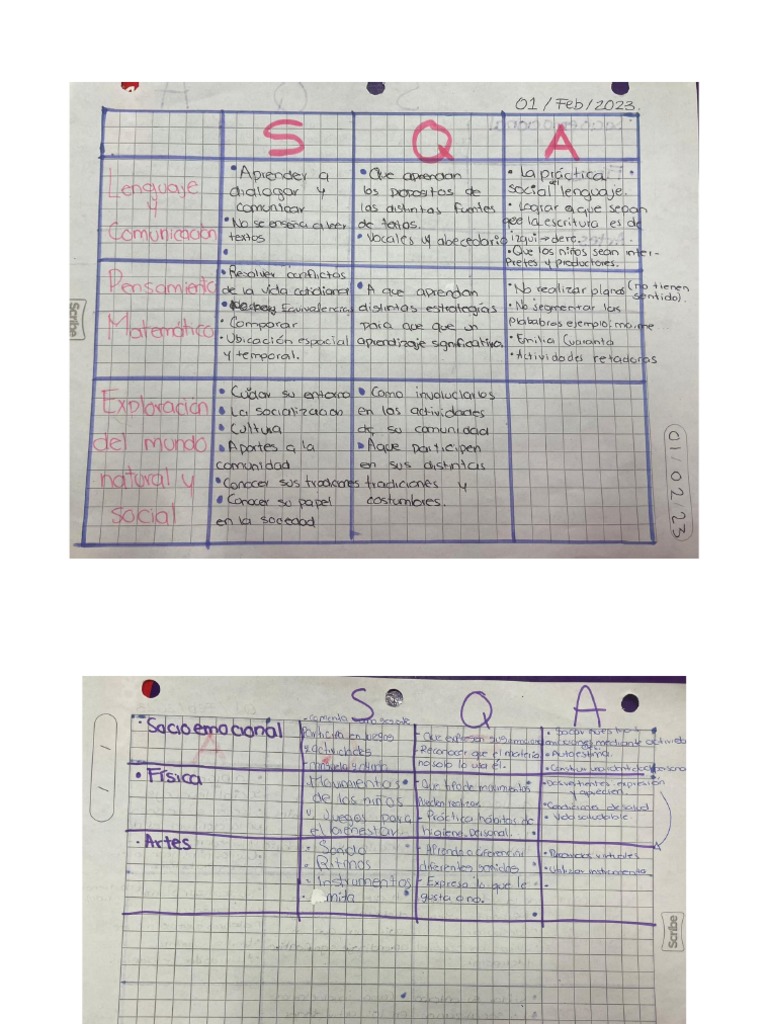 01/Feb/2023.
S Q A
Lenguaje
y
Comunicación
• Aprender a
dialogar y
comunicar
• No se enseña a leer
textos
• Que aprendan
los propositos de
las distintas fuentes
de textos.
• Vocales y abecedario
• La práctica
social lenguaje.
• Lograr a que sepan
que la escritura es de
izqui → derc.
• Que los niños sean inter-
pretes y productores.
Pensamiento
Matemático
• Resolver conflictos
de la vida cotidiana
Equivalencias
• Comparar
• Ubicación espacial
y temporal.
• A que aprendan
distintas estrategias
para que que un
aprendizaje significativa
• No realizar planas (no tienen
sentido).
• No segmentar las
Plababras ejemplo: ma me
• Emilia Cuaranta
• Actividades retadoras
Exploración
del mundo
natural y
social
• Cuidar su entorno
• La socialización
• Cultura
• Aportes a la
comunidad
• Conocer sus tradiciones
• Conocer su papel
en la sociedad
• Como involuclarlos
en los actividades
de su comunidad
• Aque participen
en sus distintas
tradiciones y
costumbres.
01/02/23
Scribe
S Q A
• Socioemocional
participa en juegos
y actividades
- Que expresen sus
- Reconocer que el material
no solo lo usa él.
• Autoestima.
• Construir una identidad personal
• Física
Movimientos
de los niños
y Juegos para
el bienestar
- Que tipo de movimientos
pueden realizar
- Práctica habitos de
higiene personal.
expresión
y aprecien.
• Condiciones de salud
• Vida saludable
• Artes
- Sonido
- Ritmos
- Instrumentos
mida
- Aprende a diferenciar
diferentes sonidos
- Expresa lo que le
gusta o no.
virtuales
• Utilizar instrumentos
Scribe